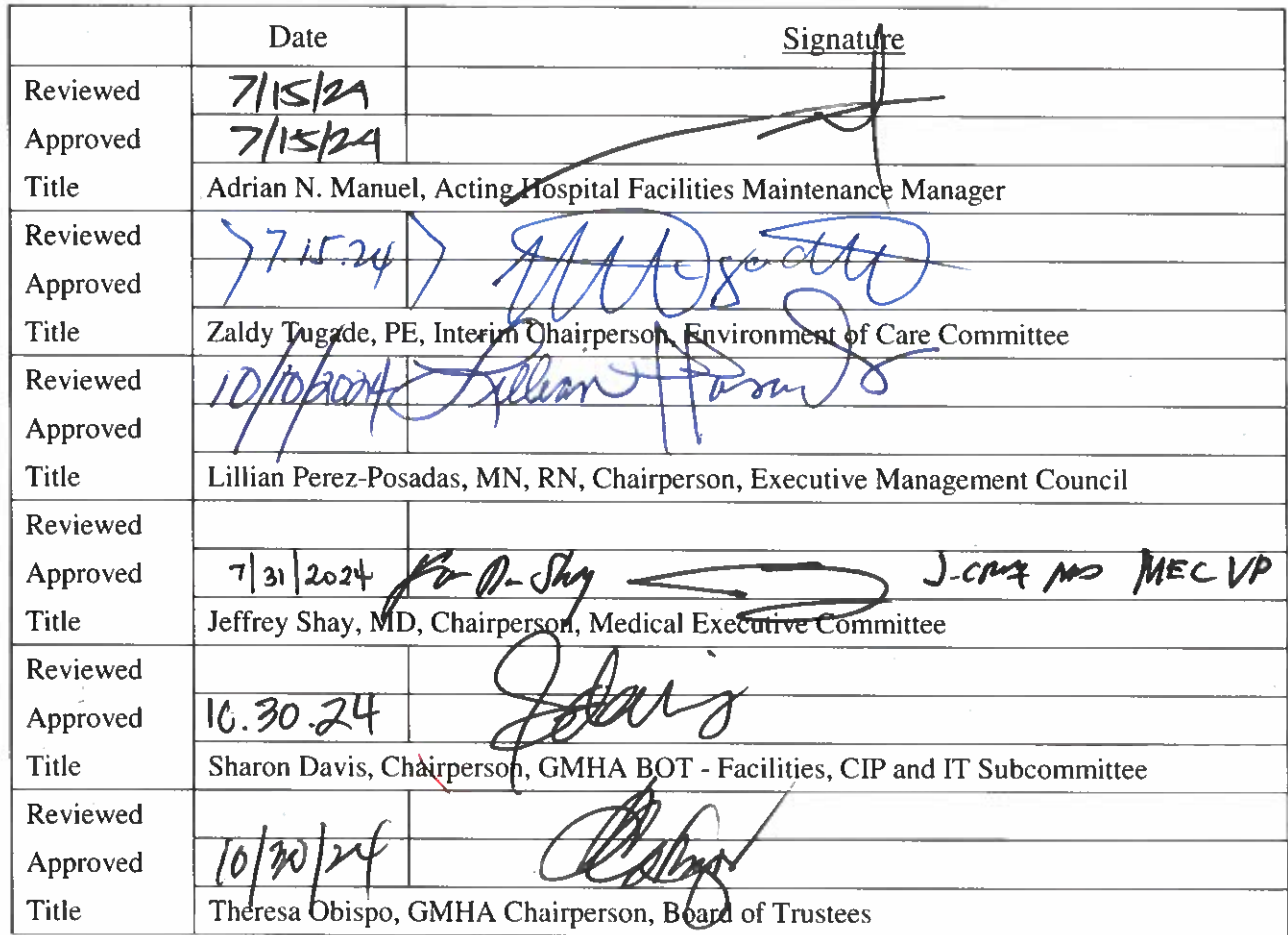 Date Signature
Reviewed 7/15/24
Approved 7/15/24
Title Adrian N. Manuel, Acting Hospital Facilities Maintenance Manager
Reviewed 7.15.24
Approved
Title Zaldy Tugade, PE, Interim Chairperson, Environment of Care Committee
Reviewed 10/10/2024 Lillian Posadas
Approved
Title Lillian Perez-Posadas, MN, RN, Chairperson, Executive Management Council
Reviewed
Approved 7/31/2024 for Dr Shay J. Cruz MD MEC VP
Title Jeffrey Shay, MD, Chairperson, Medical Executive Committee
Reviewed
Approved 10.30.24
Title Sharon Davis, Chairperson, GMHA BOT - Facilities, CIP and IT Subcommittee
Reviewed
Approved 10/30/24
Title Theresa Obispo, GMHA Chairperson, Board of Trustees